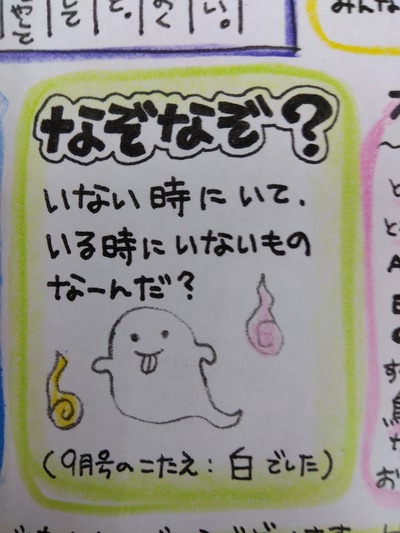 なぞなぞ?
いない時にいて、
いる時にいないもの
なーんだ?
(9月号のこたえ:白でした)